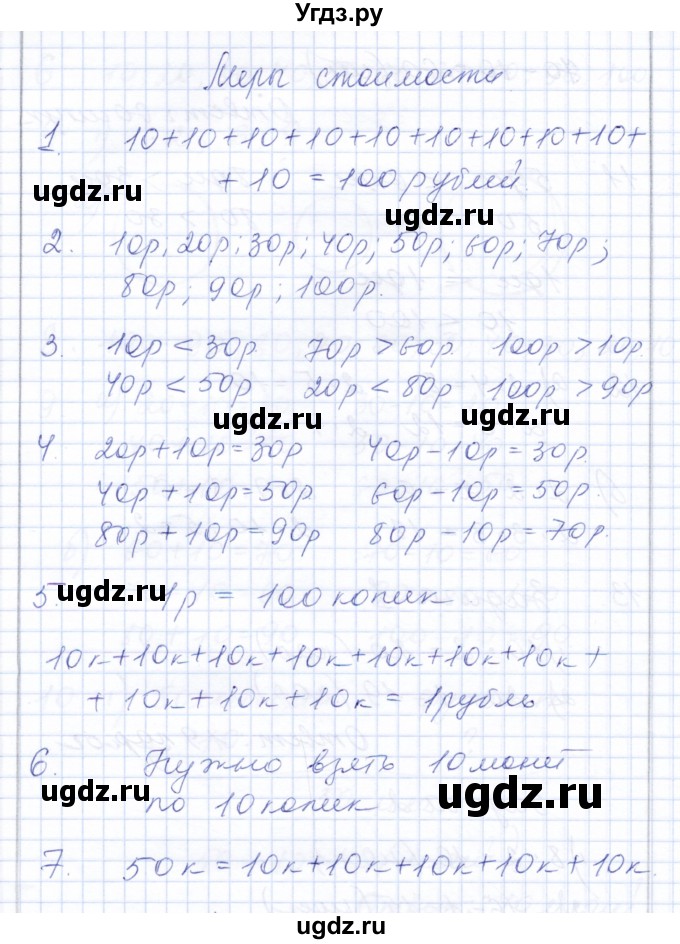 Угдз.ру
Меры стоимости
1. 10+10+10+10+10+10+10+10+10+
+10 = 100 рублей.
ugdz.ru
ugdz.ru
2. 10р; 20р; 30р; 40р; 50р; 60р; 70р;
80р; 90р; 100р.
3. 10р < 30р. 70р > 60р. 100р > 10р.
40р < 50р 20р < 80р 100р > 90р
ugdz.ru
ugdz.ru
4. 20р+10р=30р 40р-10р=30р.
40р+10р=50р 60р-10р=50р.
80р+10р=90р 80р-10р=70р.
5. ugdz.ru 1р = 100 копик
10к+10к+10к+10к+10к+10к+10к+
+10к+10к+10к = 1рубль
6. Нужно взять 10 монет
ugdz.ru по 10 копик ugdz.ru
7. 50к = 10к+10к+10к+10к+10к.
ugdz.ru